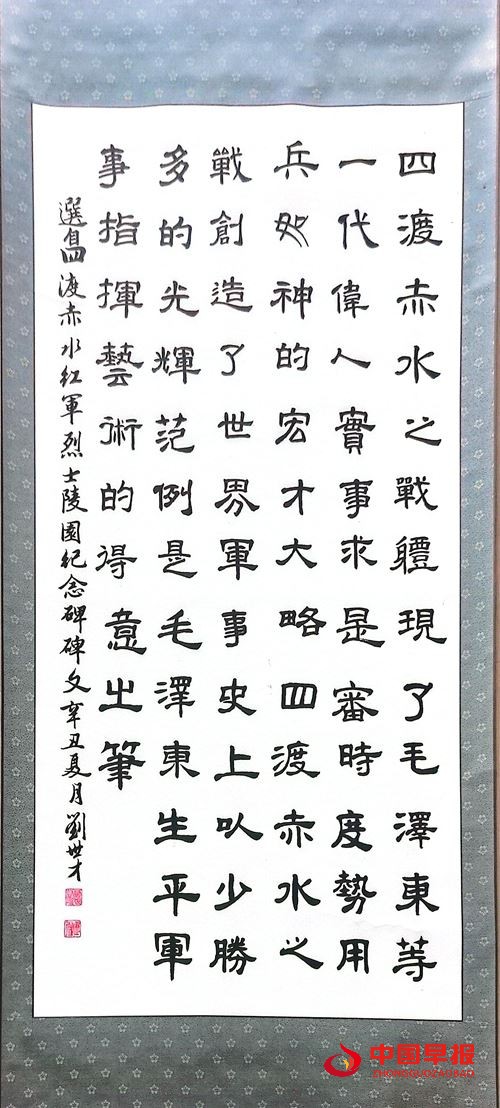 四渡赤水之戰體現了毛澤東等
一代偉人實事求是審時度勢用
兵如神的宏才大略四渡赤水之
戰創造了世界軍事史上以少勝
多的光輝范例是毛澤東生平軍
事指揮藝術的得意之筆
選自四渡赤水红軍烈士陵園纪念碑碑文辛丑夏月劉世才
中国早报
ZHONGGUOZAOBAO